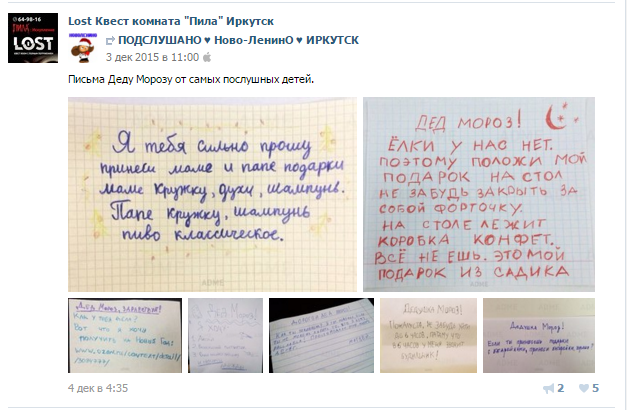 64-98-16
ПИЛА
LOST
Lost Квест комната "Пила" Иркутск
ПОДСЛУШАНО ♥ Ново-ЛенинО ♥ ИРКУТСК
3 дек 2015 в 11:00
Письма Деду Морозу от самых послушных детей.
Я тебя сильно прошу
принеси маме и папе подарки
маме кружку, духи, шампунь.
Папе кружку, шампунь
пиво классическое.
ADME
ДЕД МОРОЗ!
ЁЛКИ У НАС НЕТ.
ПОЭТОМУ ПОЛОЖИ МОЙ
ПОДАРОК НА СТОЛ
НЕ ЗАБУДЬ ЗАКРЫТЬ ЗА
СОБОЙ ФОРТОЧКУ.
НА СТОЛЕ ЛЕЖИТ
КОРОБКА КОНФЕТ.
ВСЁ НЕ ЕШЬ. ЭТО МОЙ
ПОДАРОК ИЗ САДИКА
ADME
Дед Мороз,
Как у тебя дела?
Вот что я хочу
получить на Новый Год:
Дед Мороз!
Дедушка Мороз!
Пожалуйста, не забудь что
в 6 часов, потому что
в 6 часов у меня звонит
будильник!
Дедушка Мороз!
Если ты принесёшь подарки
4 дек в 4:35
2
5